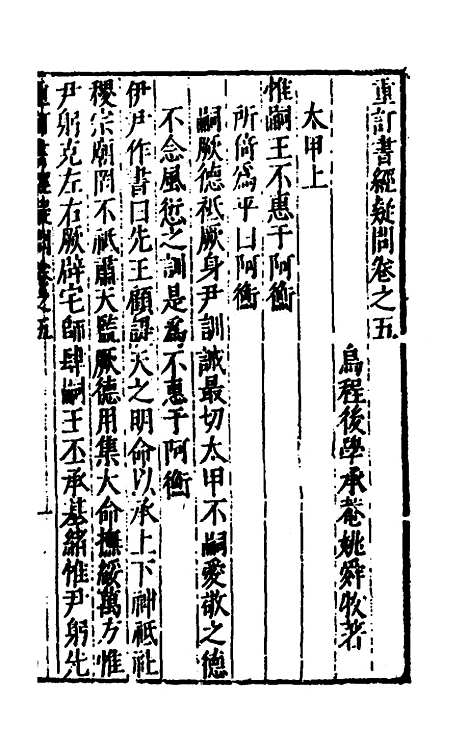 重訂書經疑問卷之五
烏程後學承菴姚舜牧著
太甲上
惟嗣王不惠于阿衡
所倚爲平曰阿衡
嗣厥德祗厥身尹訓誠最切太甲不嗣愛敬之德
不念風愆之訓是爲不惠于阿衡
伊尹作書曰先王顧諟天之明命以承上下神祗社
稷宗廟罔不祗肅天監厥德用集大命撫綏萬方惟
尹躬克左右厥辟宅師肆嗣王丕承基緒惟尹躬先
重訂書經疑問卷之五
一